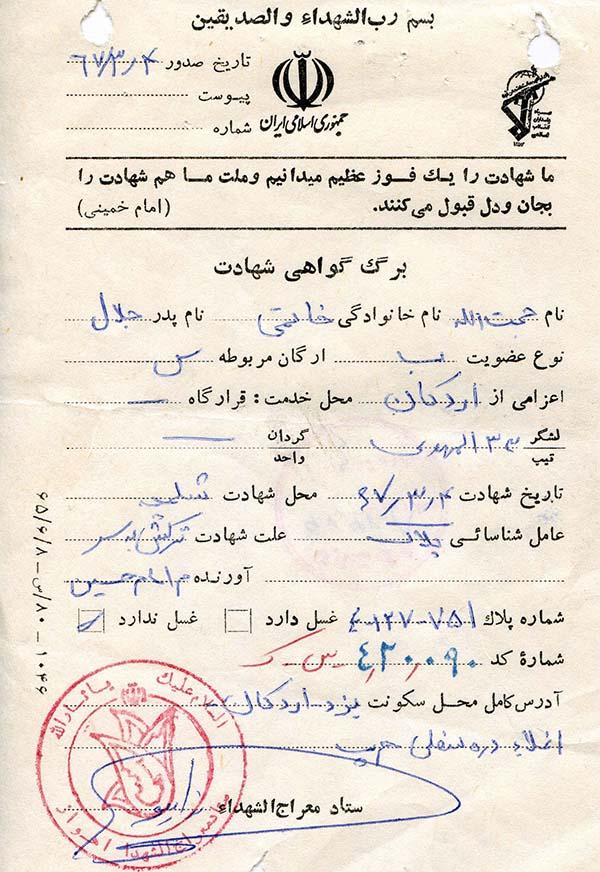 بسم رب‌الشهداء والصدیقین
تاریخ صدور ۶۷/۳/۴
پیوست
شماره
جمهوری اسلامی ایران
ما شهادت را یک فوز عظیم میدانیم وملت ما هم شهادت را
بجان ودل قبول می‌کنند. (امام خمینی)
برگ گواهی شهادت
نام حجت‌الله نام خانوادگی خاتمی نام پدر جلال
نوع عضویت ب ارگان مربوطه س
اعزامی از اردکان محل خدمت: قرارگاه —
لشگر تیپ ۳۳ المهدی گردان واحد —
تاریخ شهادت ۶۷/۳/۴ محل شهادت شلمچه
عامل شناسائی پلاک علت شهادت ترکش بسر
آورنده م امام حسین
شماره پلاک غسل دارد غسل ندارد
شمارهٔ کد
آدرس کامل محل سکونت یزد اردکان
ستاد معراج‌الشهداء
السلام علیک یا ثارالله
ستاد معراج الشهداء اهواز
۱۰۴۶ – ۸۰/س – ۶۵/۶/۸